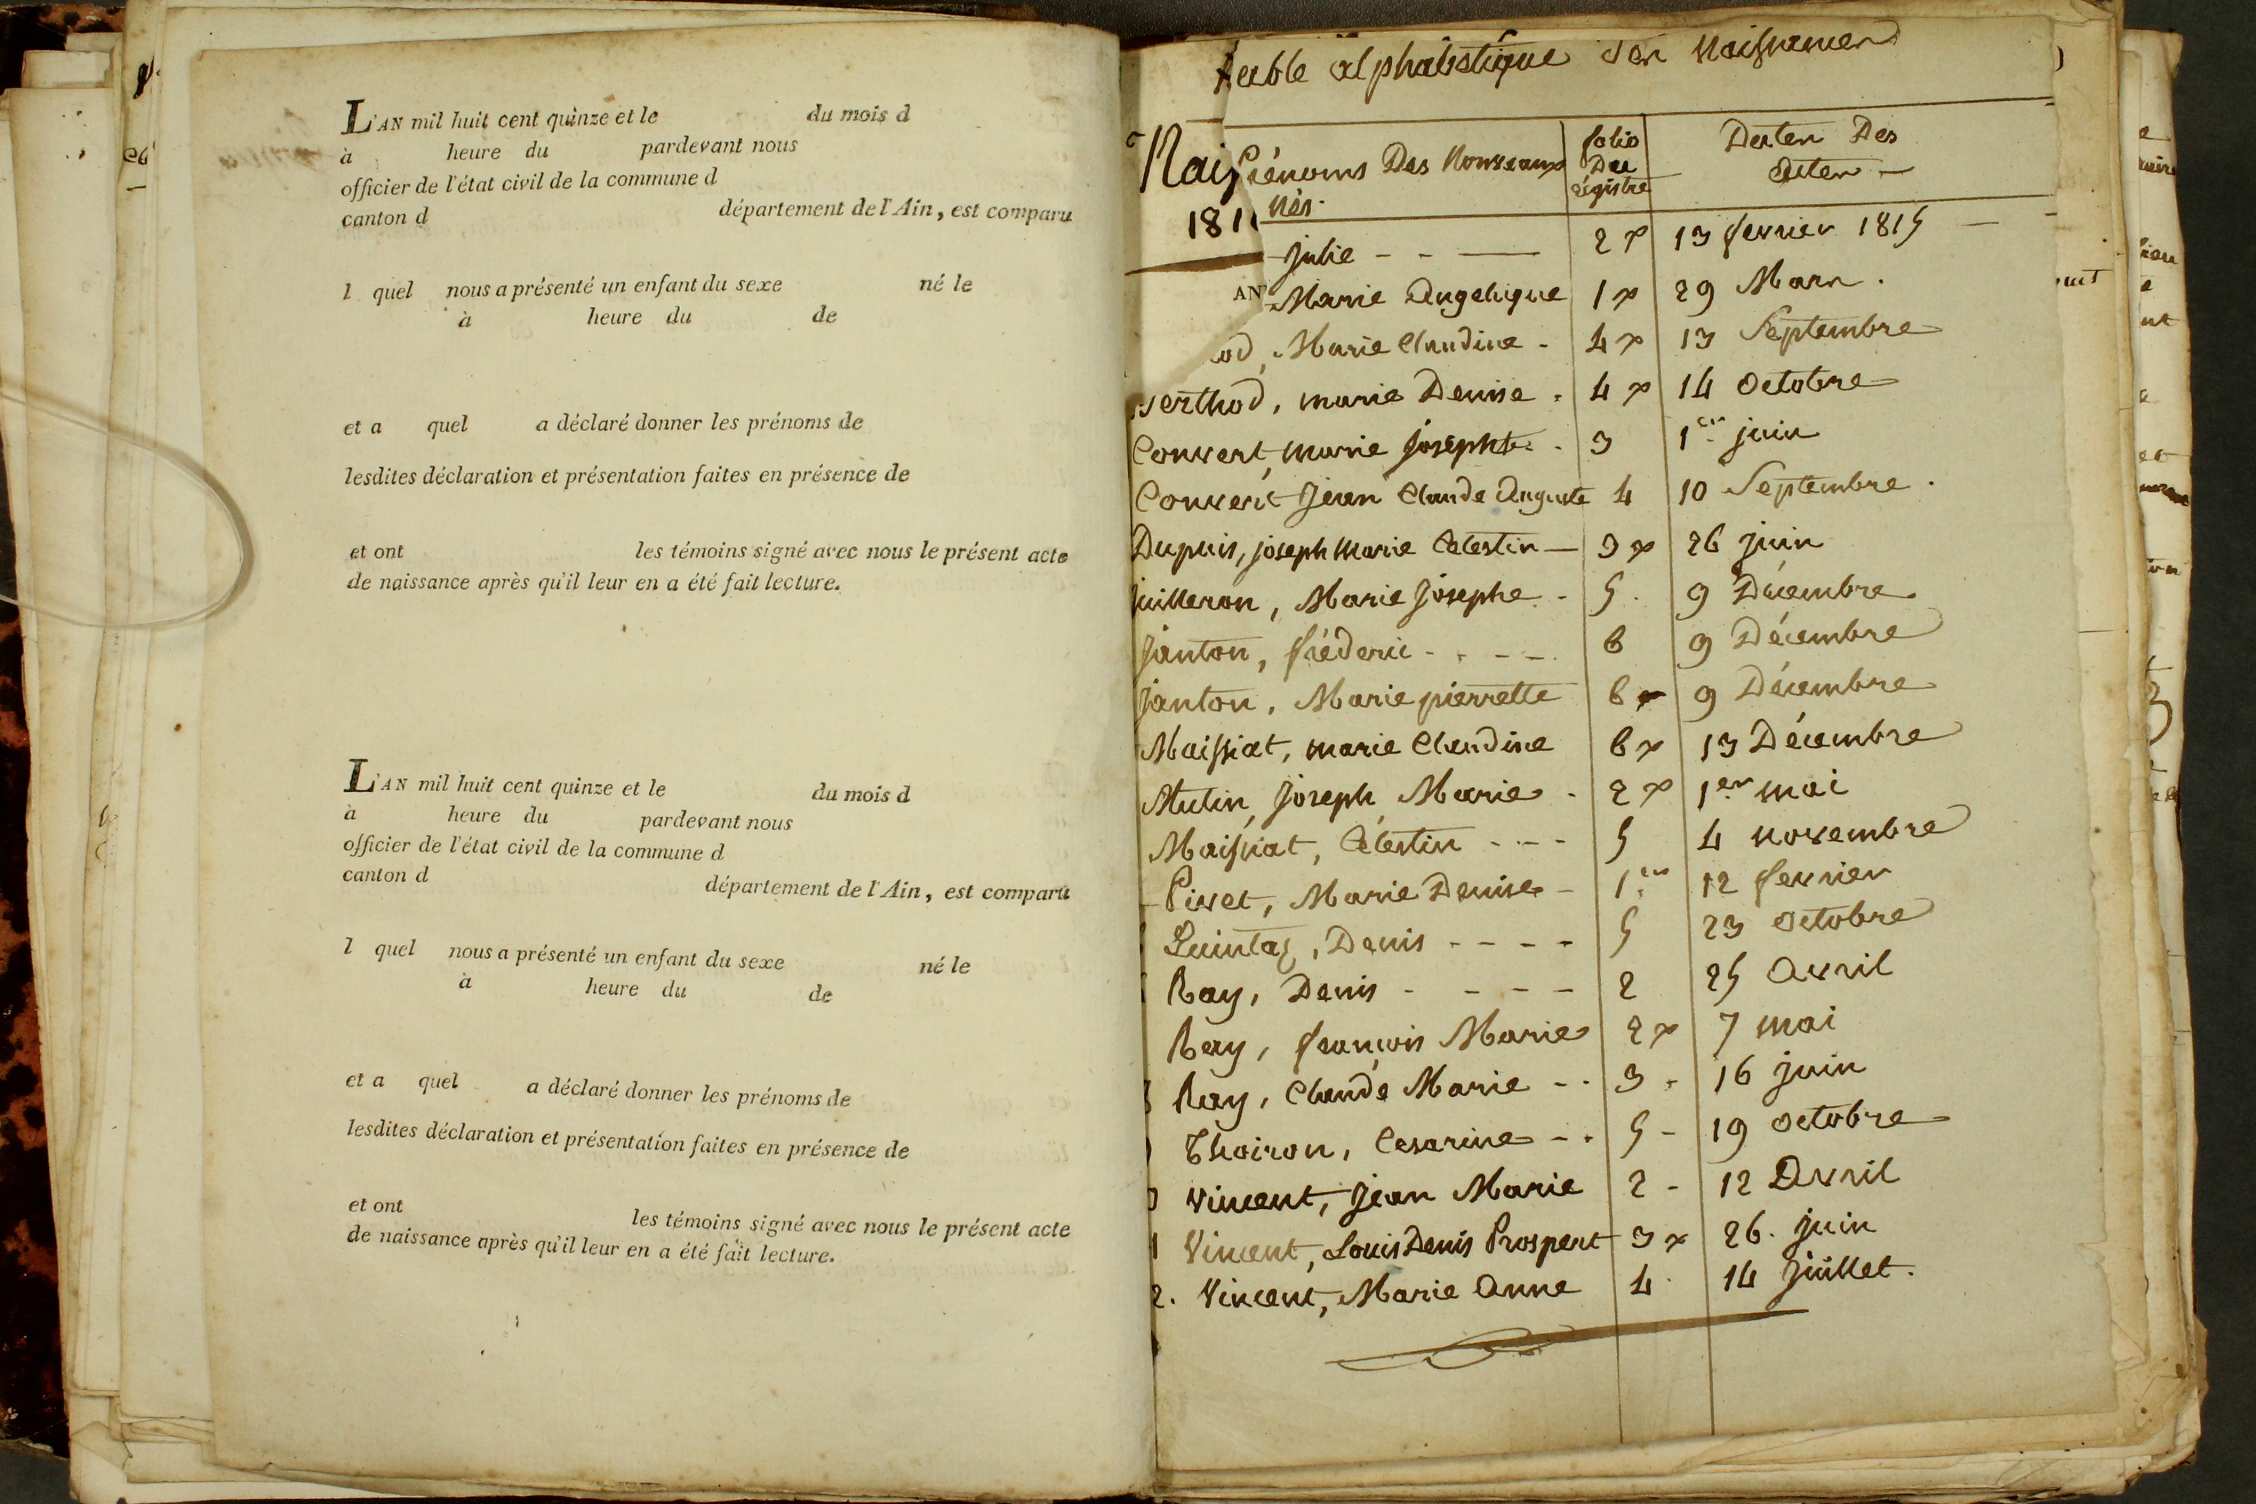 L'AN mil huit cent quinze et le du mois d
à heure du pardevant nous
officier de l'état civil de la commune d
canton d département de l'Ain, est comparu
l quel nous a présenté un enfant du sexe né le
à heure du de
et a quel a déclaré donner les prénoms de
lesdites déclaration et présentation faites en présence de
et ont les témoins signé avec nous le présent acte
de naissance après qu'il leur en a été fait lecture.
L'AN mil huit cent quinze et le du mois d
à heure du pardevant nous
officier de l'état civil de la commune d
canton d département de l'Ain, est comparu
l quel nous a présenté un enfant du sexe né le
à heure du de
et a quel a déclaré donner les prénoms de
lesdites déclaration et présentation faites en présence de
et ont les témoins signé avec nous le présent acte
de naissance après qu'il leur en a été fait lecture.
table alphabétique des Naissances
Prénoms Des Nouveaux nés. folio Du régistre Dates Des actes
Julie 2 x 13 fevrier 1815
Marie Angelique 1 x 29 Mars.
Marie Claudine 4 x 13 Septembre
Berthod, marie Denise 4 x 14 octobre
Convert, marie Josephte 3 1er juin
Convert Jean Claude Auguste 4 10 Septembre.
Dupuis, joseph Marie Celestin 3 x 26 juin
Juilleron, Marie Josephe 5. 9 Décembre
Janton, fréderic 6 9 Décembre
Janton, Marie pierrette 6 x 9 Décembre
Maissiat, marie Claudine 6 x 13 Décembre
Mutin, Joseph Marie 2 x 1er mai
Maissiat, Célestin 5 4 novembre
Pivet, Marie Denise 1er 12 fevrier
Quintaz, Denis 5 23 octobre
Ray, Denis 2 25 Avril
Ray, françois Marie 2 x 7 mai
Ray, Claude Marie 3 16 juin
Thoiron, Cesarine 5 19 octobre
Vincent, Jean Marie 2 12 Avril
1 Vincent, Louis Denis Prospert 3 x 26. juin
2. Vincent, Marie Anne 4 14 Juillet.